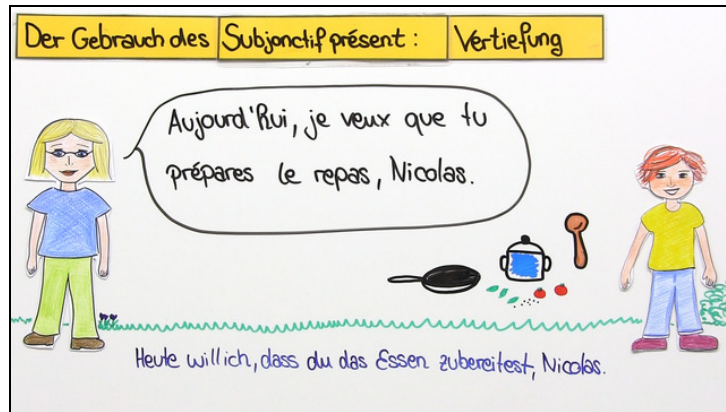 Der Gebrauch des Subjonctif présent : Vertiefung
Aujourd'hui, je veux que tu
prépares le repas, Nicolas.
Heute will ich, dass du das Essen zubereitest, Nicolas.